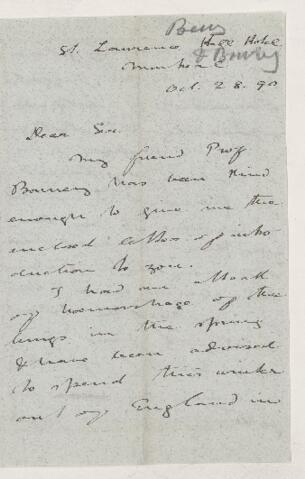 St. Lawrence Hall Hotel
Montreal
Oct. 28. 90
Dear Sir.
My friend Prof
Bonney has been kind
enough to give me the
enclosed letter of intro
duction to you.
I had an attack
of hoemorrhage of the
lungs in the spring
& have been advised
to spend this winter
out of England in